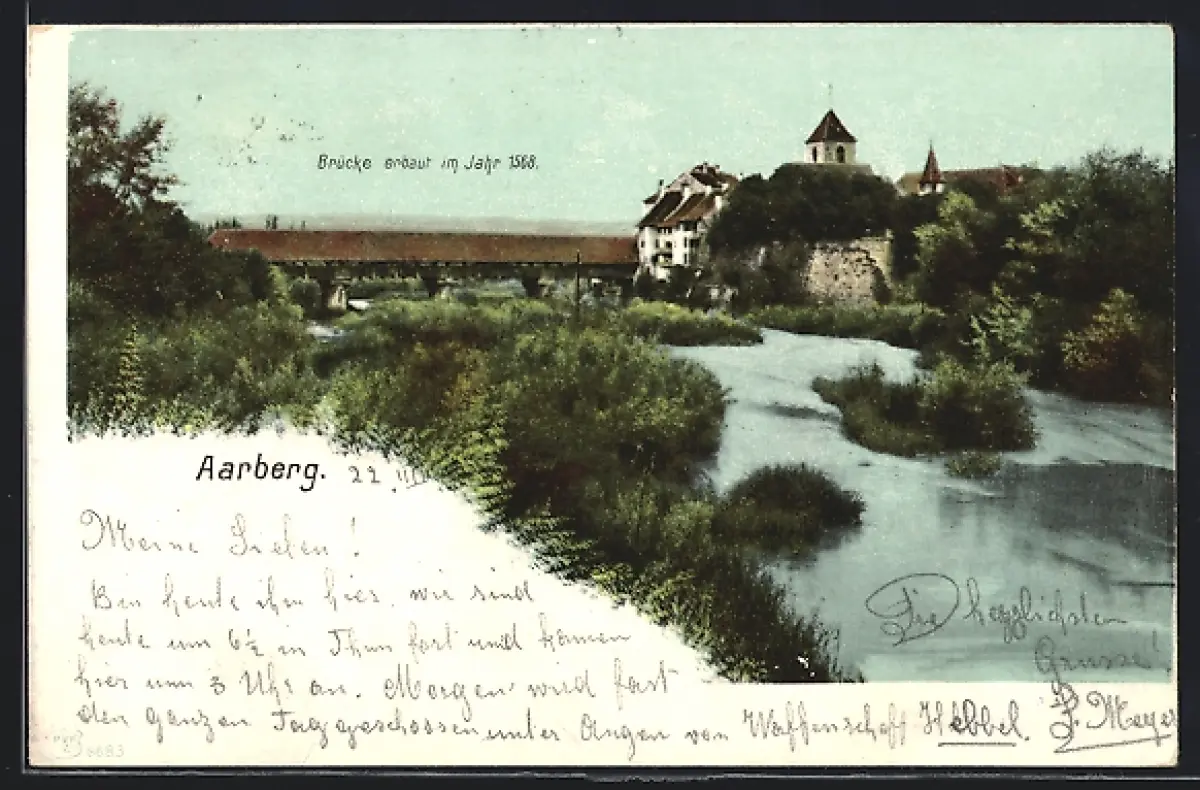 Brücke erbaut im Jahr 1568.
Aarberg. 22.
Meine Lieben!
Bin heute hier, wir sind
heute um 6½ in Thun fort und kamen
hier um 3 Uhr an. Morgen wird fast
den ganzen Tag geschossen unter Augen von Waffenschef Hebbel.
Die herzlichsten
Grüsse!
Meyer
8683